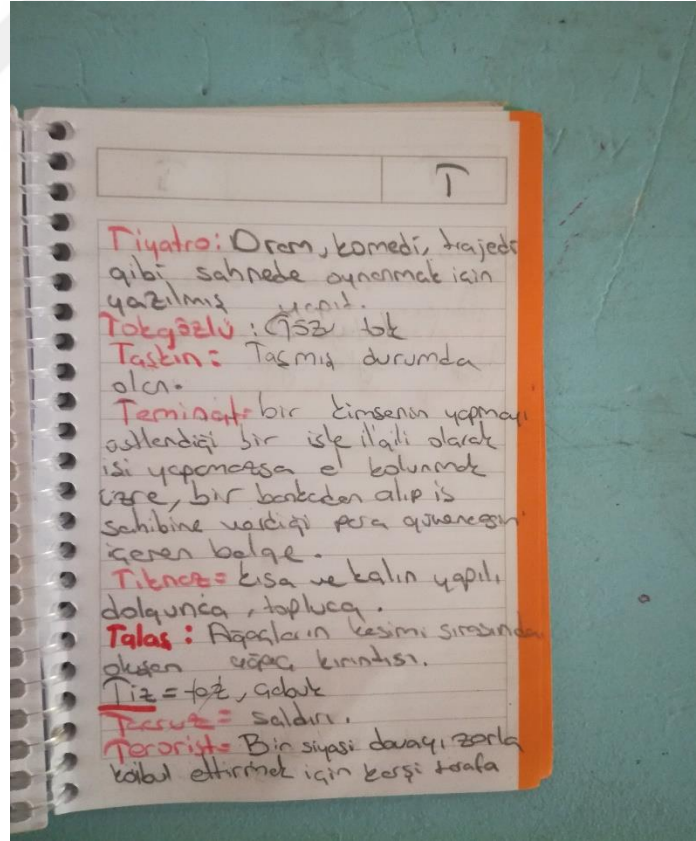 T
Tiyatro: Dram, komedi, trajedi
gibi sahnede oynanmak için
yazılmış yapıt.
Tokgözlü: Göz tok
Taşkın: Taşmış durumda
olan.
Teminat= bir kimsenin yapmayı
üstlendiği bir işle ilgili olarak
işi yapamazsa el kolunmak
üzre, bir bankadan alıp iş
sahibine verdiği para güvencesin
içeren belge.
Tiknaz= kısa ve kalın yapılı,
dolgunca, topluca.
Talaş: Ağaçların kesimi sırasında
oluşan ağaç kırıntısı.
Tiz = tez, çabuk
Taaruz= saldırı.
Terorist= Bir siyasi davayı zorla
kabul ettirmek için karşı tarafa